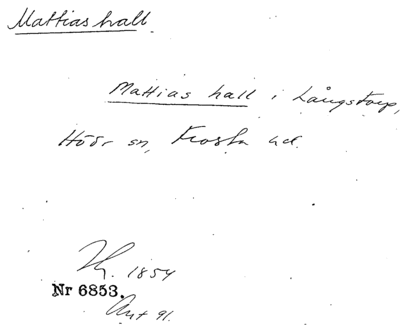 Mattias hall
Mattias hall i Långstorp,
Höör sn, Frosta hd.
1854
Nr 6853.
Ant 91.